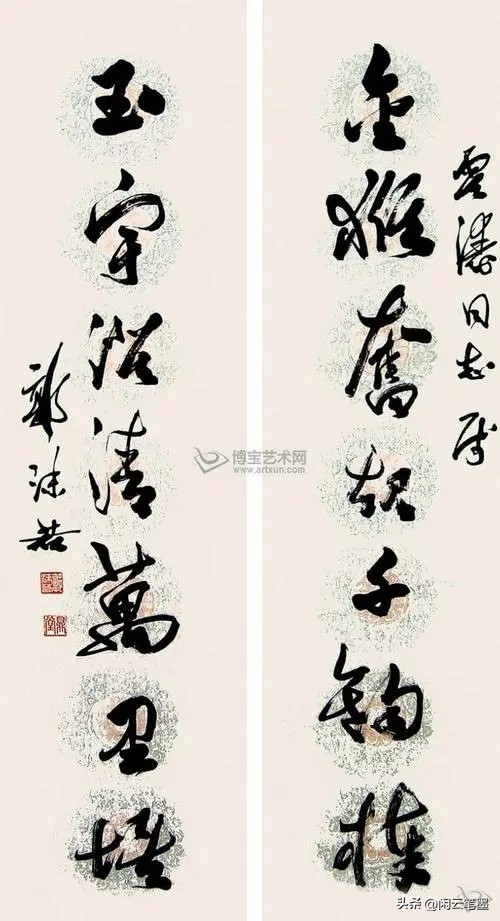 雲濤同志属
金猴奮起千鈞棒
玉宇澄清萬里埃
郭沫若
博宝艺术网
www.artxun.com
头条@闲云笔墨